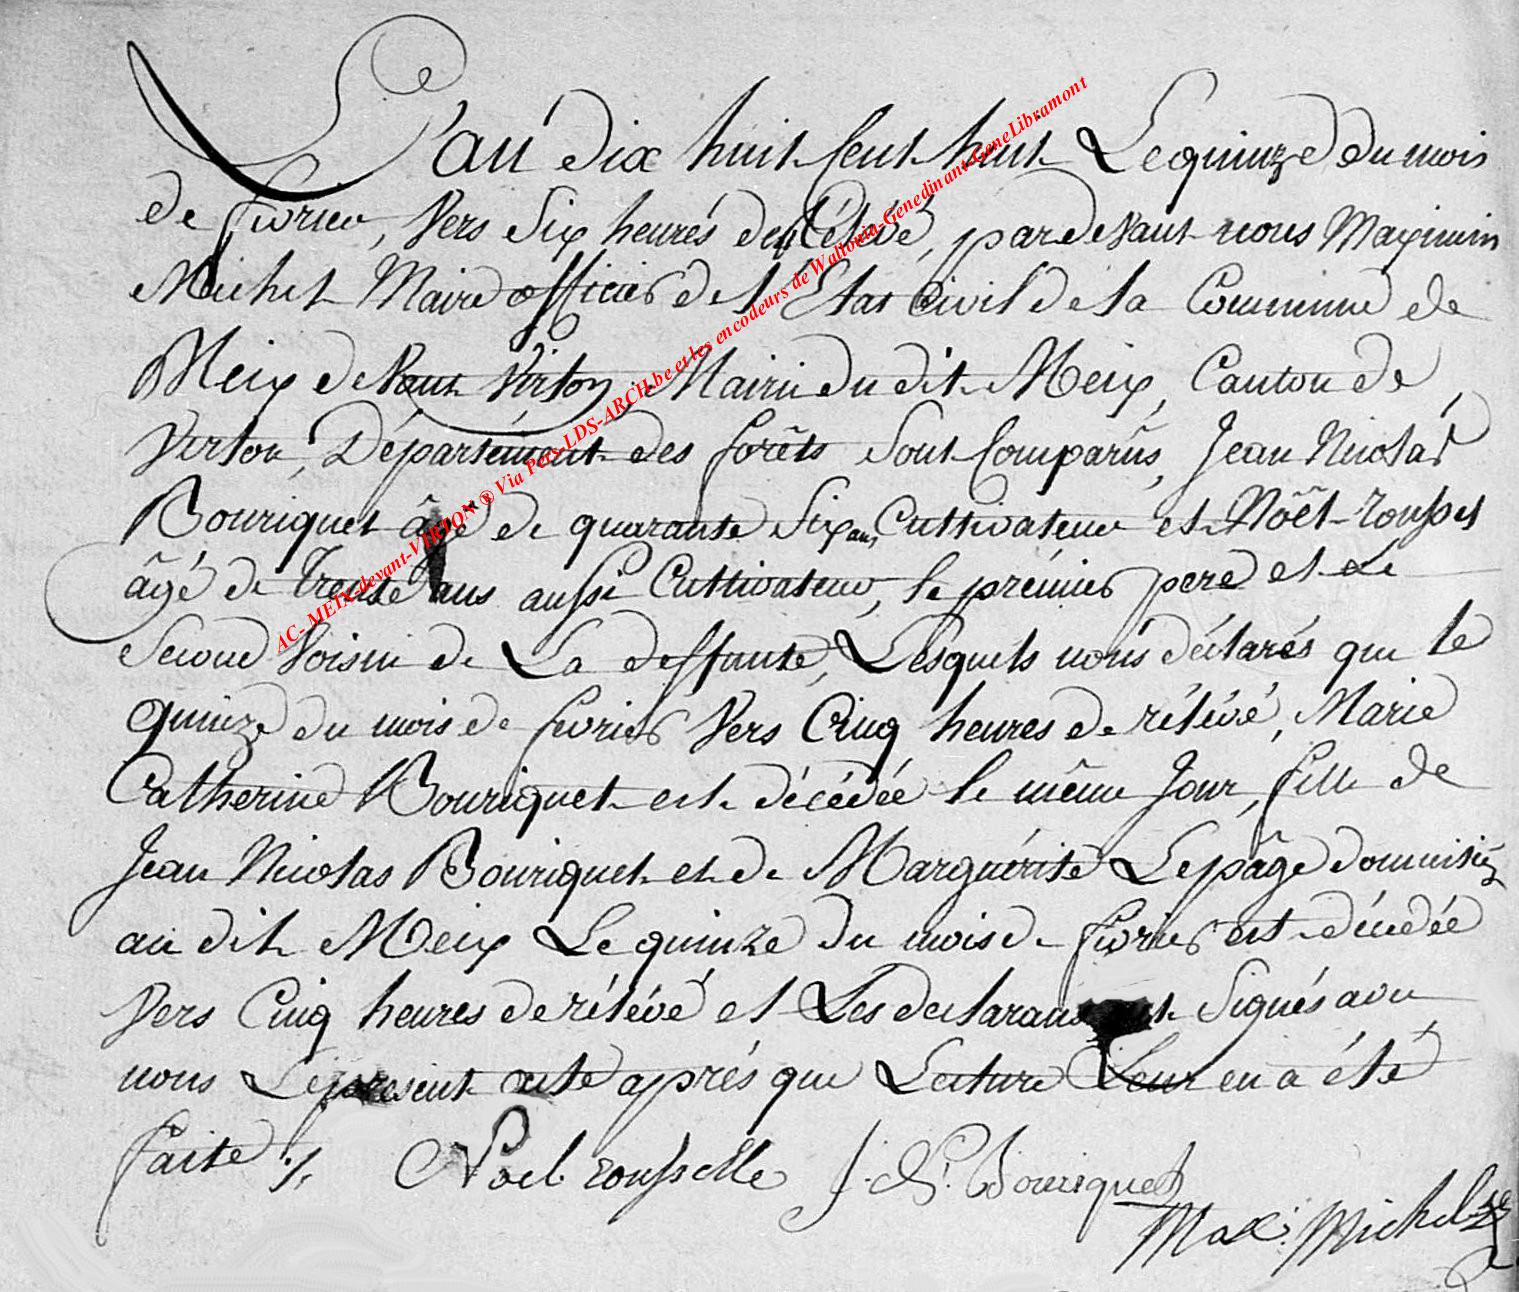 L'an dix huit Cent huit Le quinze du mois
de fevrier, Vers Six heurés de rélévé, pardevant nous Maximin
Michel Maire officier de l'Etat Civil de la Commune de
Meix devant Virton, Mairie du dit Meix, Canton de
Virton, Départément des forêts Sont Comparûs, Jean Nicolas
Bouriquet âgé de quarante Six ans, Cultivateur et Noêl rousset
âgé de Trente ans aussi Cultivateur, le prémier pere et Le
Second Voisin de La deffunte, Lesquels nous déclarés que le
quinze du mois de fevrier Vers Cinq heures de rélévé, Marie
Catherine Bouriquet est décédée le même Jour, fille de
Jean Nicolas Bouriquet et de Marguérite Lepâge
au dit Meix Le quinze du mois de fevrier est décédée
Vers Cinq heures de rélévé et Les declarans ont Signés avec
nous Le present acte aprés que Lecture Leur en a été
faite ./. Noel rousselle J. N. Bouriquet
Max: Michel
AC- MEIX-devant-VIRTON ® Via Pers-LDS-ARCH.be et les encodeurs de Wallonia-Genedinant-GeneLibramont